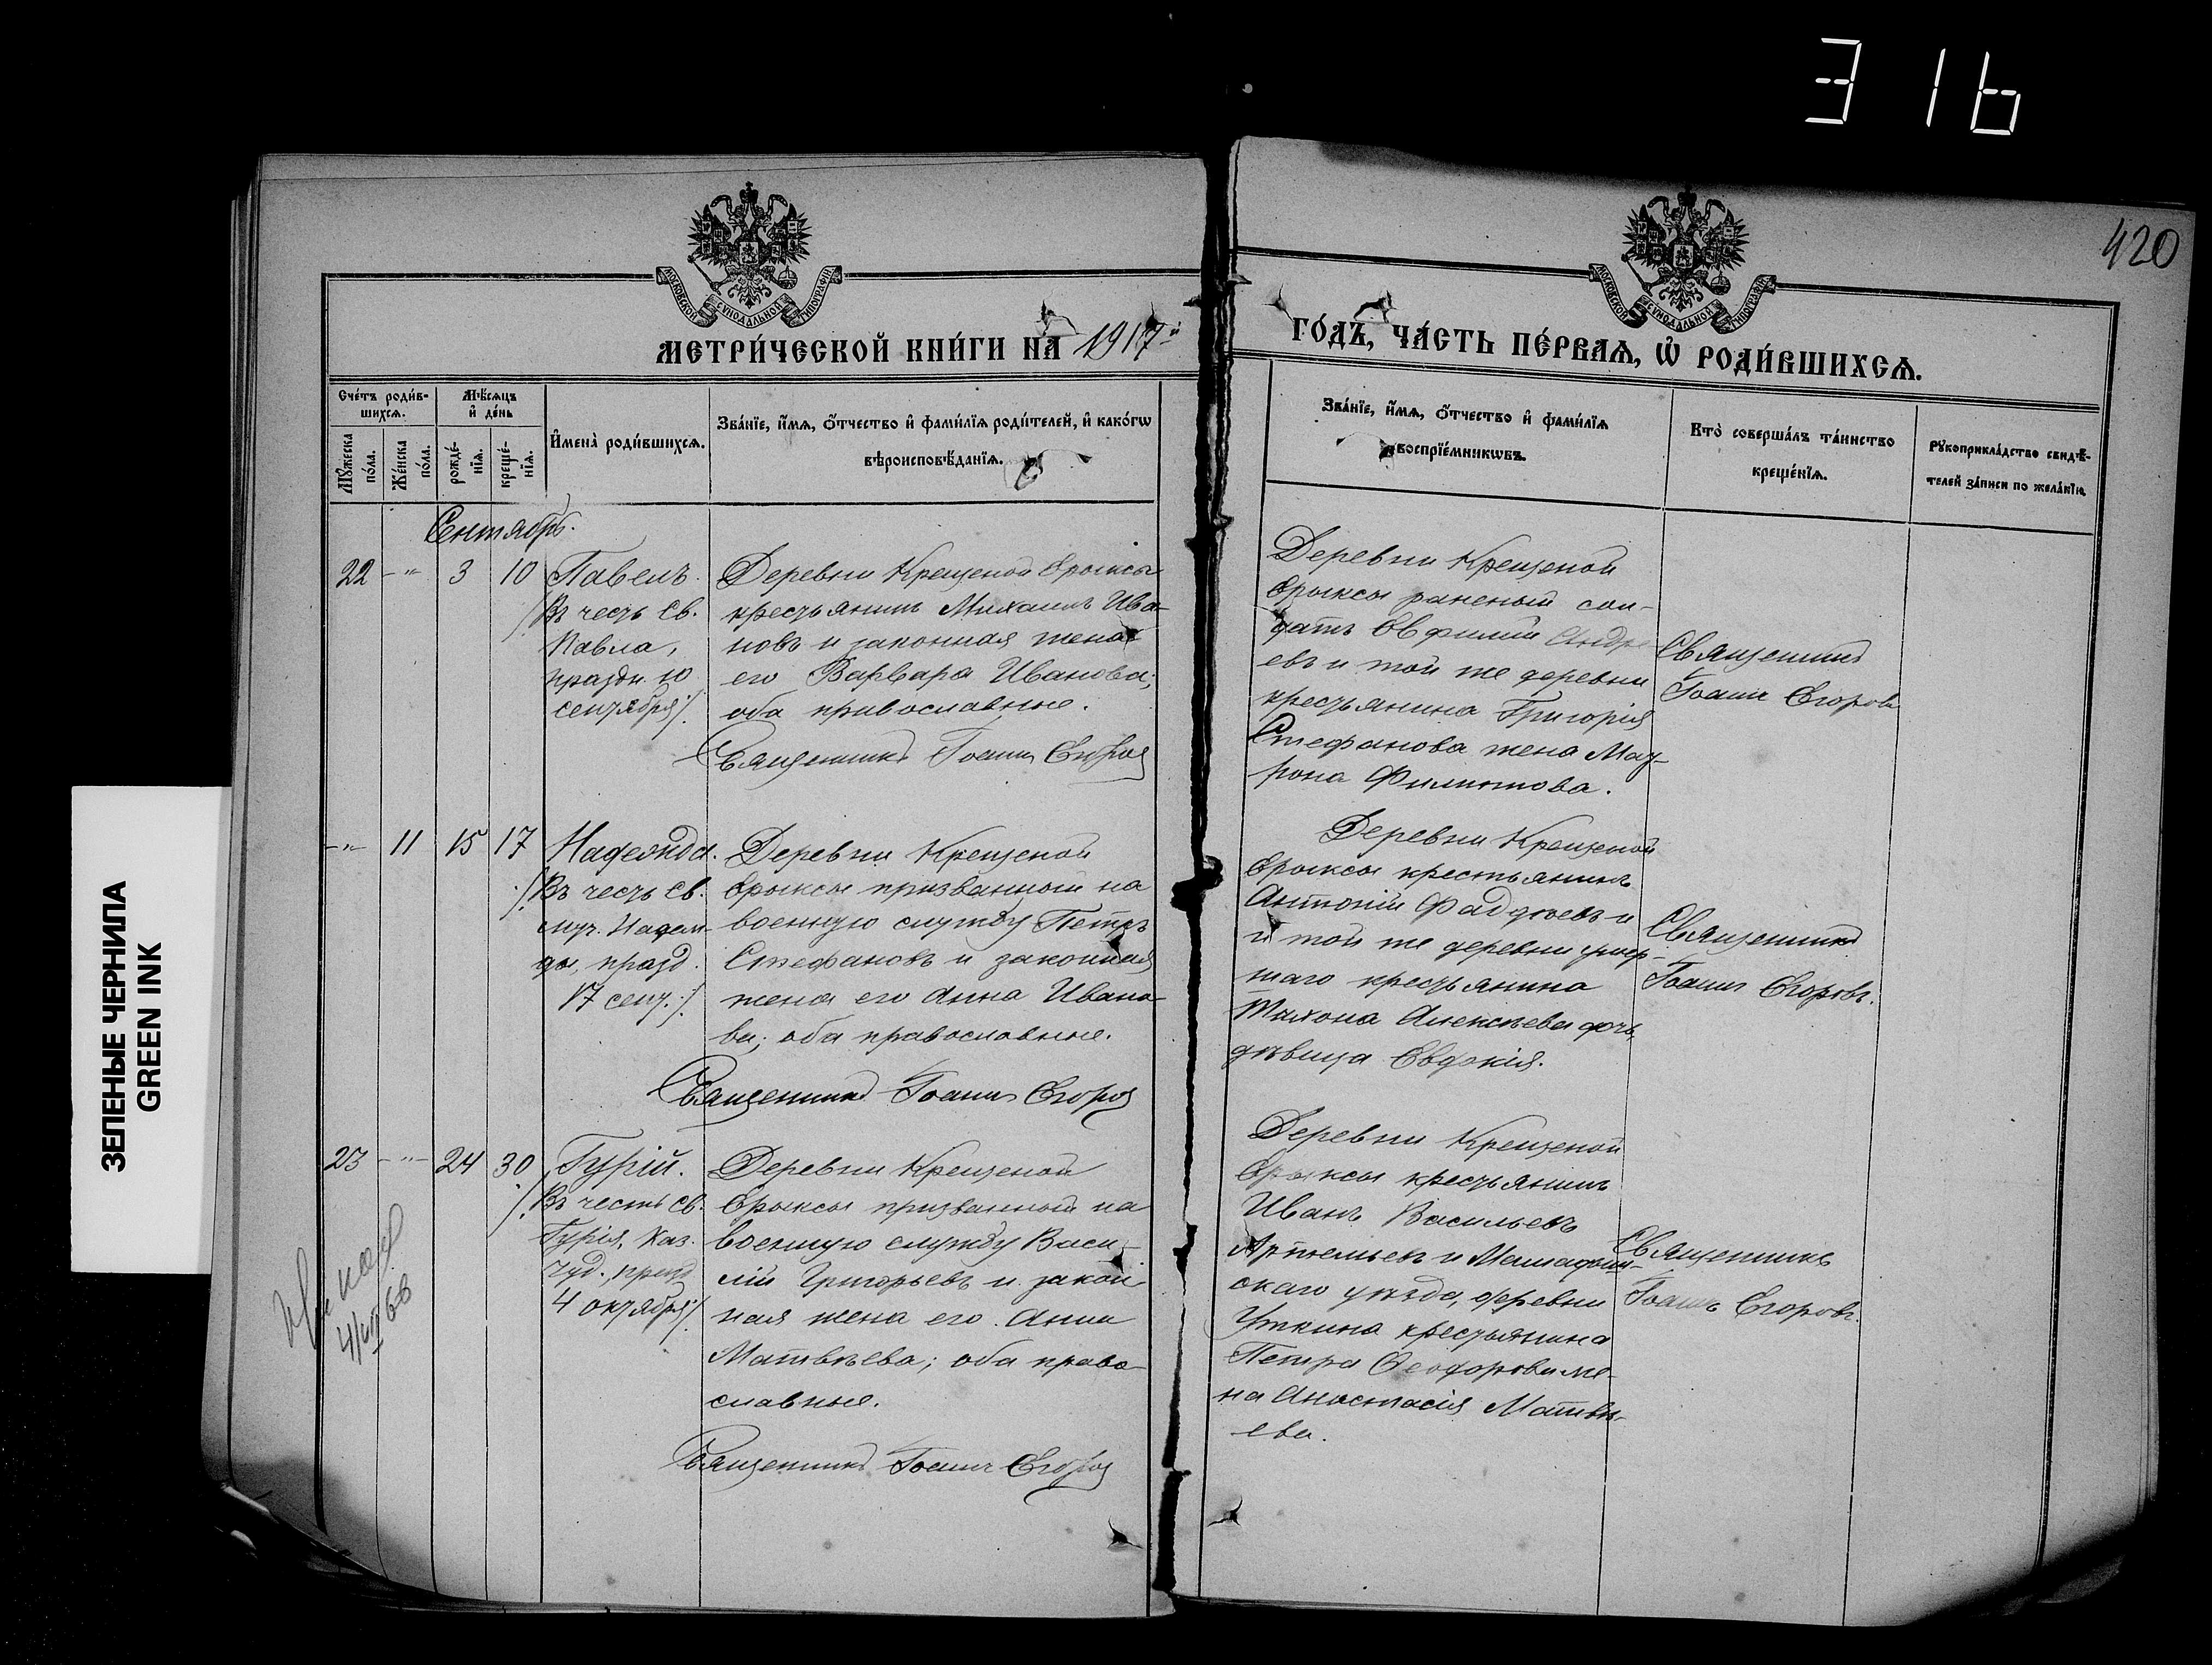 316
420
МОСКОВСКОЙ СѴНОДАЛЬНОЙ ТИПОГРАФІИ
МОСКОВСКОЙ СѴНОДАЛЬНОЙ ТИПОГРАФІИ
МЕТРИ́ЧЕСКОЙ КНИ́ГИ НА 1917й
ГО́ДЪ, ЧА́СТЬ ПЕ́РВАѦ, Ѡ҆ РОДИ́ВШИХСѦ.
Сче́тъ роди́в-
шихсѧ.
Мѣ́сѧцъ
и҆ де́нь
Мꙋ́жеска
по́ла.
Же́нска
по́ла.
рожде́-
нїѧ.
креще́-
нїѧ.
И҆мена̀ роди́вшихсѧ.
Зва́нїе, и҆́мѧ, ѻ҆́тчество и҆ фами́лїѧ роди́телей, и҆ како́гѡ
вѣроисповѣ́данїѧ.
Зва́нїе, и҆́мѧ, ѻ҆́тчество и҆ фами́лїѧ
воспрїе́мникѡвъ.
Кто̀ соверша́лъ та́инство
креще́нїѧ.
Рꙋкоприкла́дство свидѣ́-
телей за́писи по жела́нїю.
Сентябрь.
22 -"- 3 10 Павелъ.
/Въ честь св.
Павла,
праздн. 10
сентября/.
Деревни Крещеной Ерыксы
крестьянинъ Михаилъ Ива-
новъ и законная жена
его Варвара Иванова;
оба православные.
Священникъ Іоаннъ Егоровъ
Деревни Крещеной
Ерыксы раненый сол-
датъ Евфимій Андре
евъ и той же деревни
крестьянина Григорія
Стефанова жена Мат-
рона Филиппова.
Священникъ
Іоаннъ Егоровъ
-"- 11 15 17 Надежда.
/Въ честь св.
муч. Надеж-
ды, празд.
17 сент./.
Деревни Крещеной
Ерыксы призванный на
военную службу Петръ
Стефановъ и законная
жена его Анна Ивано-
ва; оба православные.
Священникъ Іоаннъ Егоровъ
Деревни Крещеной
Ерыксы крестьянинъ
Антоній Фаддѣевъ и
и той же деревни умер-
шаго крестьянина
Тихона Алексѣева дочь,
дѣвица Евдокія.
Священникъ
Іоаннъ Егоровъ.
23 -"- 24 30 Гурій.
/Въ честь св.
Гурія, Каз.
чуд., празд
4 октября/.
Деревни Крещеной
Ерыксы призванный на
военную службу Васи-
лій Григорьевъ и закон-
ная жена его Анна
Матвѣева; оба право-
славные.
Священникъ Іоаннъ Егоровъ
Деревни Крещеной
Ерыксы крестьянинъ
Иванъ Васильевъ
Артемьевъ и Мамадыш-
скаго уѣзда, деревни
Уткина крестьянина
Петра Ѳеодорова же-
на Анастасія Матвѣ-
ева.
Священникъ
Іоаннъ Егоровъ.
ЗЕЛЕНЫЕ ЧЕРНИЛА
GREEN INK